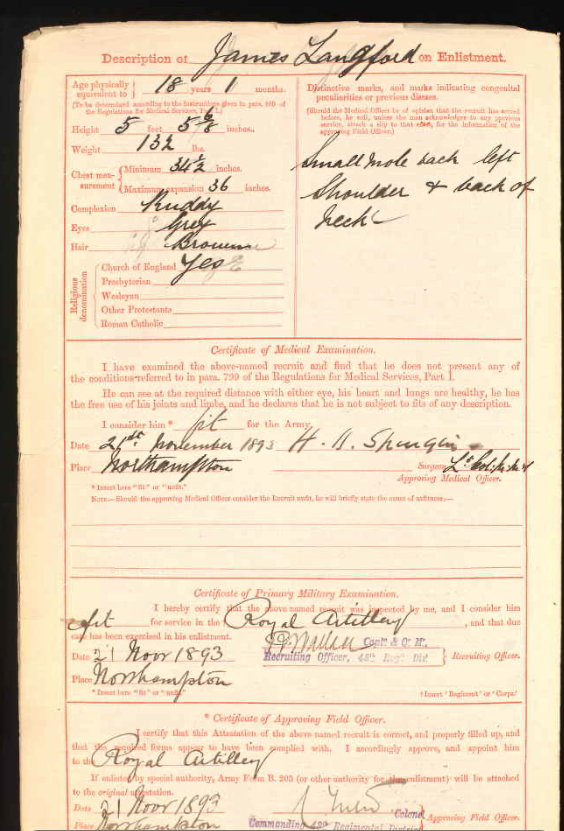 Description of James Langford on Enlistment.
Age physically equivalent to } 18 years 1 months.
(To be determined according to the instructions given in para. of the Regulations for Medical Services,
Height 5 feet 5 6/8 inches.
Weight 132 lbs.
Chest measurement { Minimum 34 1/2 inches.
Maximum expansion 36 inches.
Complexion Ruddy
Eyes Grey
Hair Brown
Religious denomination
Church of England Yes
Presbyterian
Wesleyan
Other Protestants
Roman Catholic
Distinctive marks, and marks indicating congenital
peculiarities or previous disease.
(Should the Medical Officer be of opinion that the recruit has served
before, he will, unless the man acknowledges to any previous
service, attach a slip to that effect, for the information of the
approving Field Officer.)
Small mole back left
Shoulder & back of
neck
Certificate of Medical Examination.
I have examined the above-named recruit and find that he does not present any of
the conditions referred to in para. 799 of the Regulations for Medical Services, Part I.
He can see at the required distance with either eye, his heart and lungs are healthy, he has
the free use of his joints and limbs, and he declares that he is not subject to fits of any description.
I consider him * fit for the Army.
Date 21st November 1893 H. D.
Place Northampton Surgeon Lt Col.
Approving Medical Officer.
* Insert here "fit" or "unfit."
NOTE.—Should the approving Medical Officer consider the Recruit unfit, he will briefly state the cause of unfitness:—
Certificate of Primary Military Examination.
I hereby certify that the above-named recruit was inspected by me, and I consider him
fit for service in the Royal Artillery, and that due
care has been exercised in his enlistment.
Capt. & Q. M.
Date 21 Novr 1893 Recruiting Officer, Regt. Dist. } Recruiting Officer.
Place Northampton
* Insert here "fit" or "unfit." † Insert 'Regiment' or 'Corps.'
* Certificate of Approving Field Officer.
I certify that this Attestation of the above-named recruit is correct, and properly filled up, and
that the required forms appear to have been complied with. I accordingly approve, and appoint him
to the Royal Artillery
If enlisted by special authority, Army Form B. 203 (or other authority for the enlistment) will be attached
to the original attestation.
Date 21 Novr 1893 Colonel } Approving Field Officer.
Place Northampton Commanding Regimental District